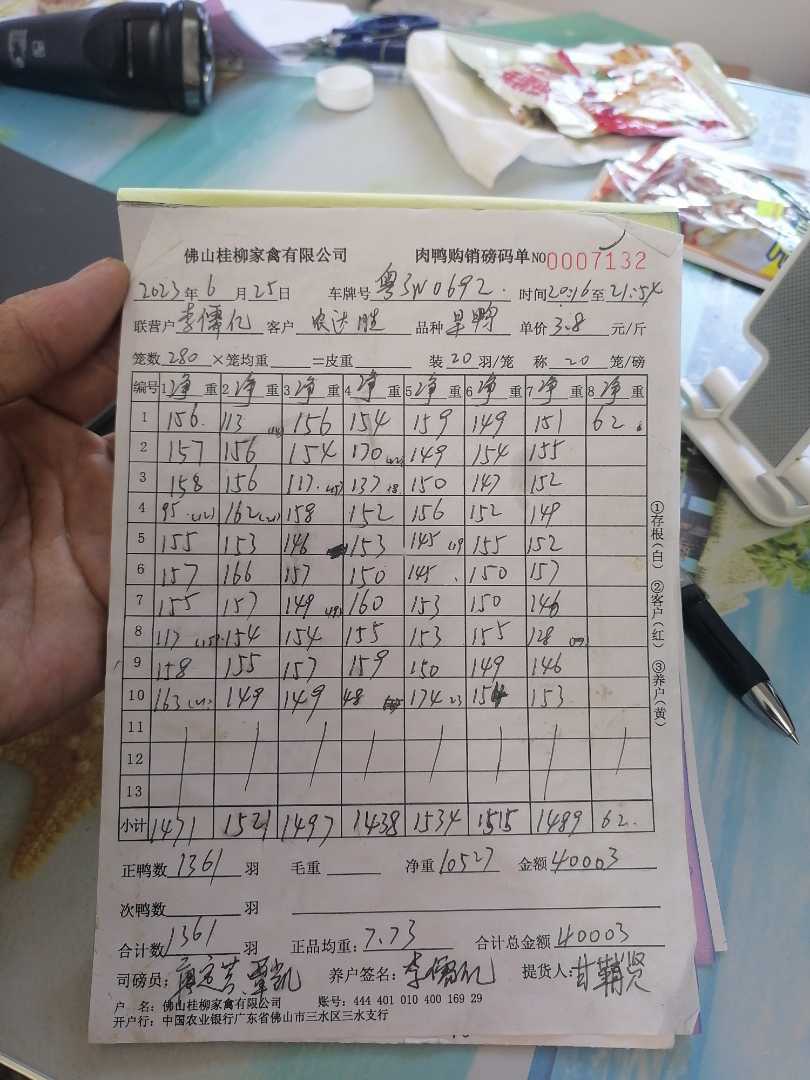 佛山桂柳家禽有限公司 肉鸭购销磅码单 NO 0007132
2023年6月25日 车牌号 粤JW0692. 时间20:16至21:54
联营户 李儒亿 客户 农达胜 品种 旱鸭 单价 3.8 元/斤
笼数 280 ×笼均重 =皮重 装20羽/笼 称20笼/磅
编号 1净重 2净重 3净重 4净重 5净重 6净重 7净重 8净重
1 156. 113 156 154 159 149 151 62.
2 157 156 154 170 149 154 155
3 158 156 117. 137 18 150 147 152
4 95. 162 158 152 156 152 149
5 155 153 146 153 145 119 155 152
6 157 166 157 150 145. 150 157
7 155 157 149 160 153 150 146
8 117 154 154 155 153 155 128
9 158 155 157 159 150 149 146
10 163 149 149 48 174 23 154 153
11
12
13
小计 1471 1521 1497 1438 1534 1515 1489 62.
正鸭数 1361 羽 毛重 净重 10527 金额 40003
次鸭数 羽
合计数 1361 羽 正品均重: 7.73 合计总金额 40003
司磅员: 覃凯 养户签名: 李儒亿 提货人:
户 名: 佛山桂柳家禽有限公司 账号: 444 401 010 400 169 29
开户行: 中国农业银行广东省佛山市三水区三水支行
①存根(白) ②客户(红) ③养户(黄)